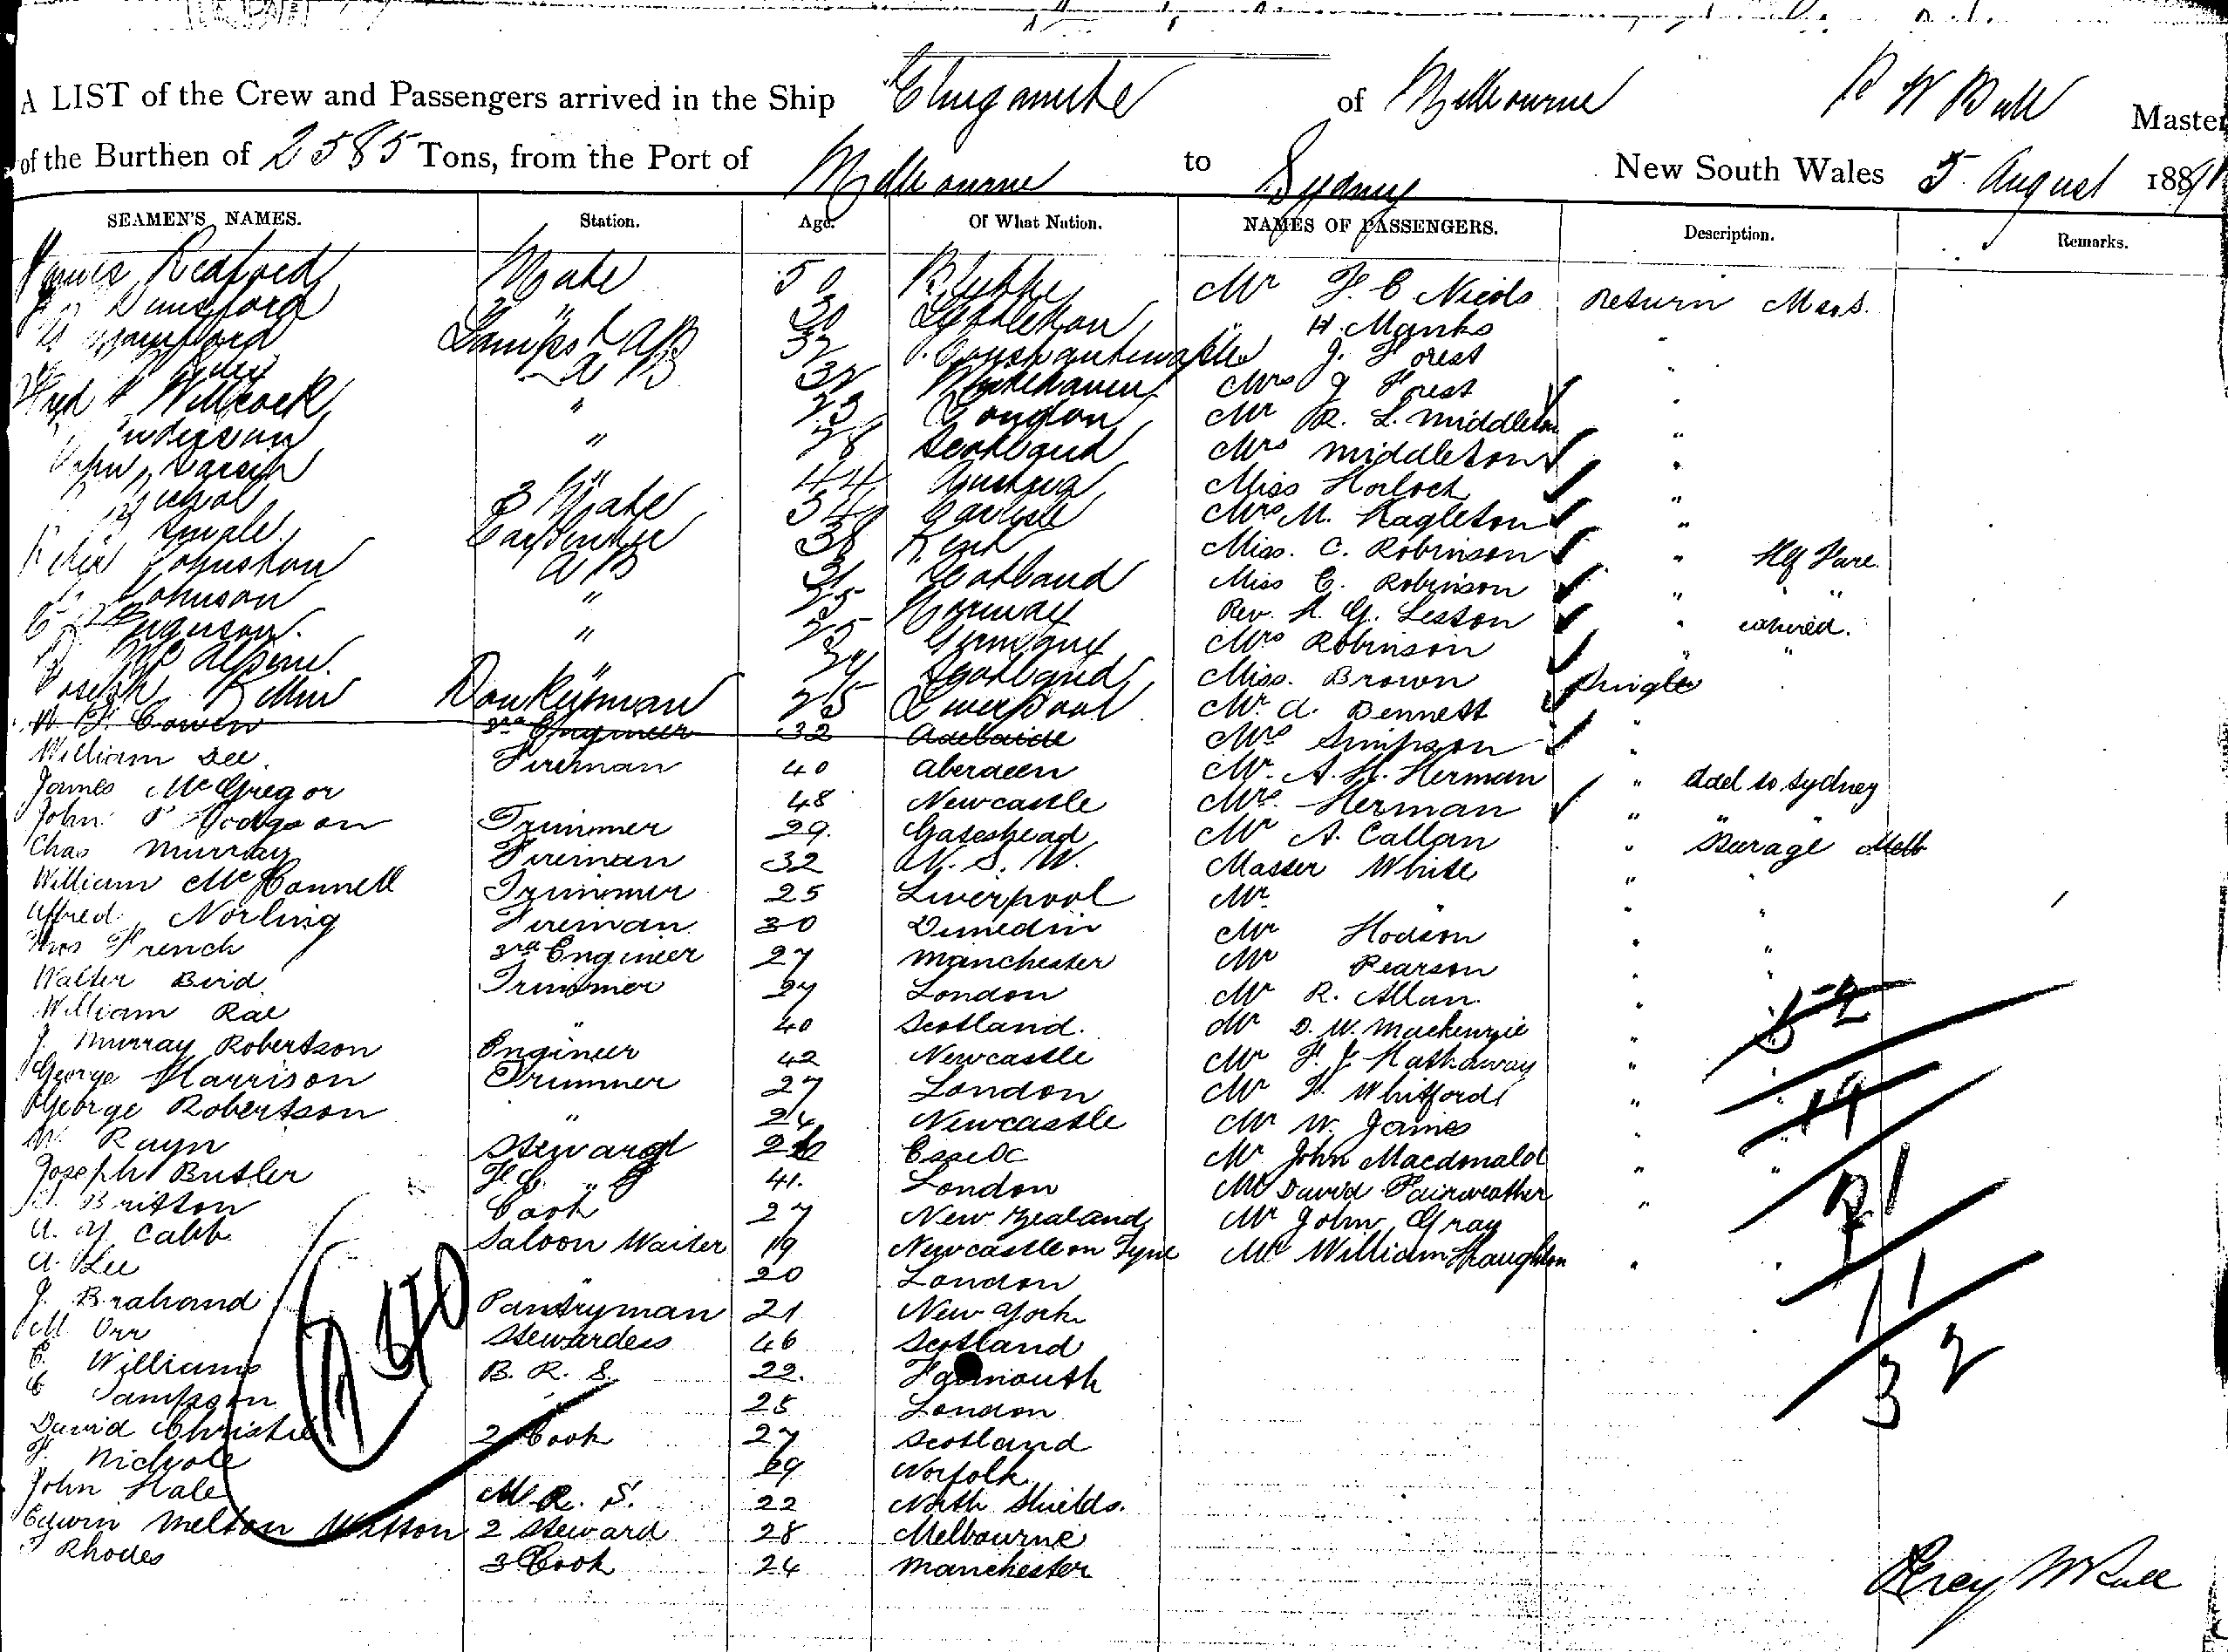 A LIST of the Crew and Passengers arrived in the Ship Elingamite of Melbourne P W Bull Master
of the Burthen of 2585 Tons, from the Port of Melbourne to Sydney New South Wales 5 August 1891
SEAMEN'S NAMES. Station. Age. Of What Nation. NAMES OF PASSENGERS. Description. Remarks.
James Redford Mate 50 Mr F. C Nicols return Mars.
Dunsford " 30 Lyttleton " H. Manks "
Lamps & AB 32 J. Forest "
AB 32 Whitehaven Mrs J Forest "
Fred Willcock " 23 London Mr R. L. Middleton "
Anderson " 28 Scotland Mrs Middleton "
John " 44 Austria Miss Horlock "
Nichol 3 Mate 34 Carlisle Mrs M. Hagleton "
Smale Carpenter 38 Kent Miss. C. Robinson " Hlf Fare.
Peter Johnston AB 31 Scotland Miss C. Robinson " "
Johnson " 25 Norway Rev. H. G. Lesson "
Ferguson. " 25 Germany Mrs Robinson " "
Mc Alpine. " Scotland Miss. Brown Single
Joseph Donkeyman 25 Liverpool Mr A. Bennett "
W. F. Cowen 3rd Engineer 32 Adelaide Mrs Simpson "
William Dee. Fireman 40 Aberdeen Mr. A. H. Herman " Adel to Sydney
James McGregor 48 Newcastle Mrs. Herman " "
John P Hodgson Trimmer 29. Gateshead Mr A. Callan " Steerage Melb
Chas Murray Fireman 32 N. S. W. Master White " "
William McConnell Trimmer 25 Liverpool Mr. " " "
Alfred Norling Fireman 30 Dunedin Mr Hodson " "
Thos French 3rd Engineer 27 Manchester Mr Pearson "
Walter Bird Trimmer 27 London Mr R. Allan. " 52
William Rae " 40 Scotland. Mr D. W. Mackenzie "
J. Murray Robertson Engineer 42 Newcastle Mr F. J. Hathaway " "
George Harrison Trimmer 27 London Mr F. Whitford " 19
George Robertson " 24 Newcastle Mr W. James "
W. Rayn Steward 26 Essex Mr John Macdonald " "
Joseph Butler F. C. " 41. London Mr David Fairweather " 21
Britton Cook 27 New Zealand Mr John Gray
A. Y Cabb Saloon Waiter 19 Newcastle on Tyne Mr William Straughton "
A. Lee " 20 London 11
J. Brahand Pantryman 21 New York
M. Orr Stewardess 46 Scotland 32
C. Williams B. R. S. 22. Falmouth
C Sampson " 25 London
David Christie 2 Cook 27 Scotland
F. Nichole 29 Norfolk
John Hale M. R. S. 22 North Shields.
Edwin Melton Watson 2 Steward 28 Melbourne
F Rhodes 3 Cook 24 Manchester
Percy W Bull